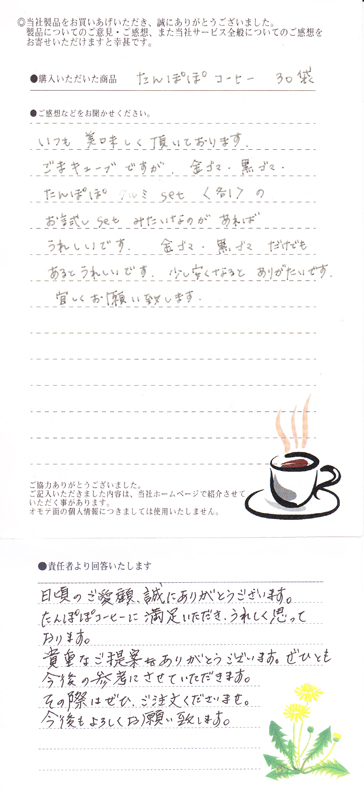 ◎当社製品をお買いあげいただき、誠にありがとうございました。
製品についてのご意見・ご感想、また当社サービス全般についてのご感想を
お寄せいただけますと幸甚です。
●購入いただいた商品 たんぽぽコーヒー 30袋
●ご感想などをお聞かせください。
いつも 美味しく頂いております。
ごまキューブですが、金ゴマ・黒ゴマ・
たんぽぽ クルミ set 〈各1〉の
お試し set みたいなのが あれば
うれしいです。 金ゴマ・黒ゴマ だけでも
あるとうれしいです。少し安くなると ありがたいです。
宜しくお願い致します。
ご協力ありがとうございました。
ご記入いただきました内容は、当社ホームページで紹介させて
いただく事があります。
オモテ面の個人情報につきましては使用いたしません。
●責任者より回答いたします
日頃のご愛顧、誠にありがとうございます。
たんぽぽコーヒーに満足いただき、うれしく思って
おります。
貴重なご提案もありがとうございます。ぜひとも
今後の参考にさせていただきます。
その際はぜひ、ご注文くださいませ。
今後もよろしくお願い致します。